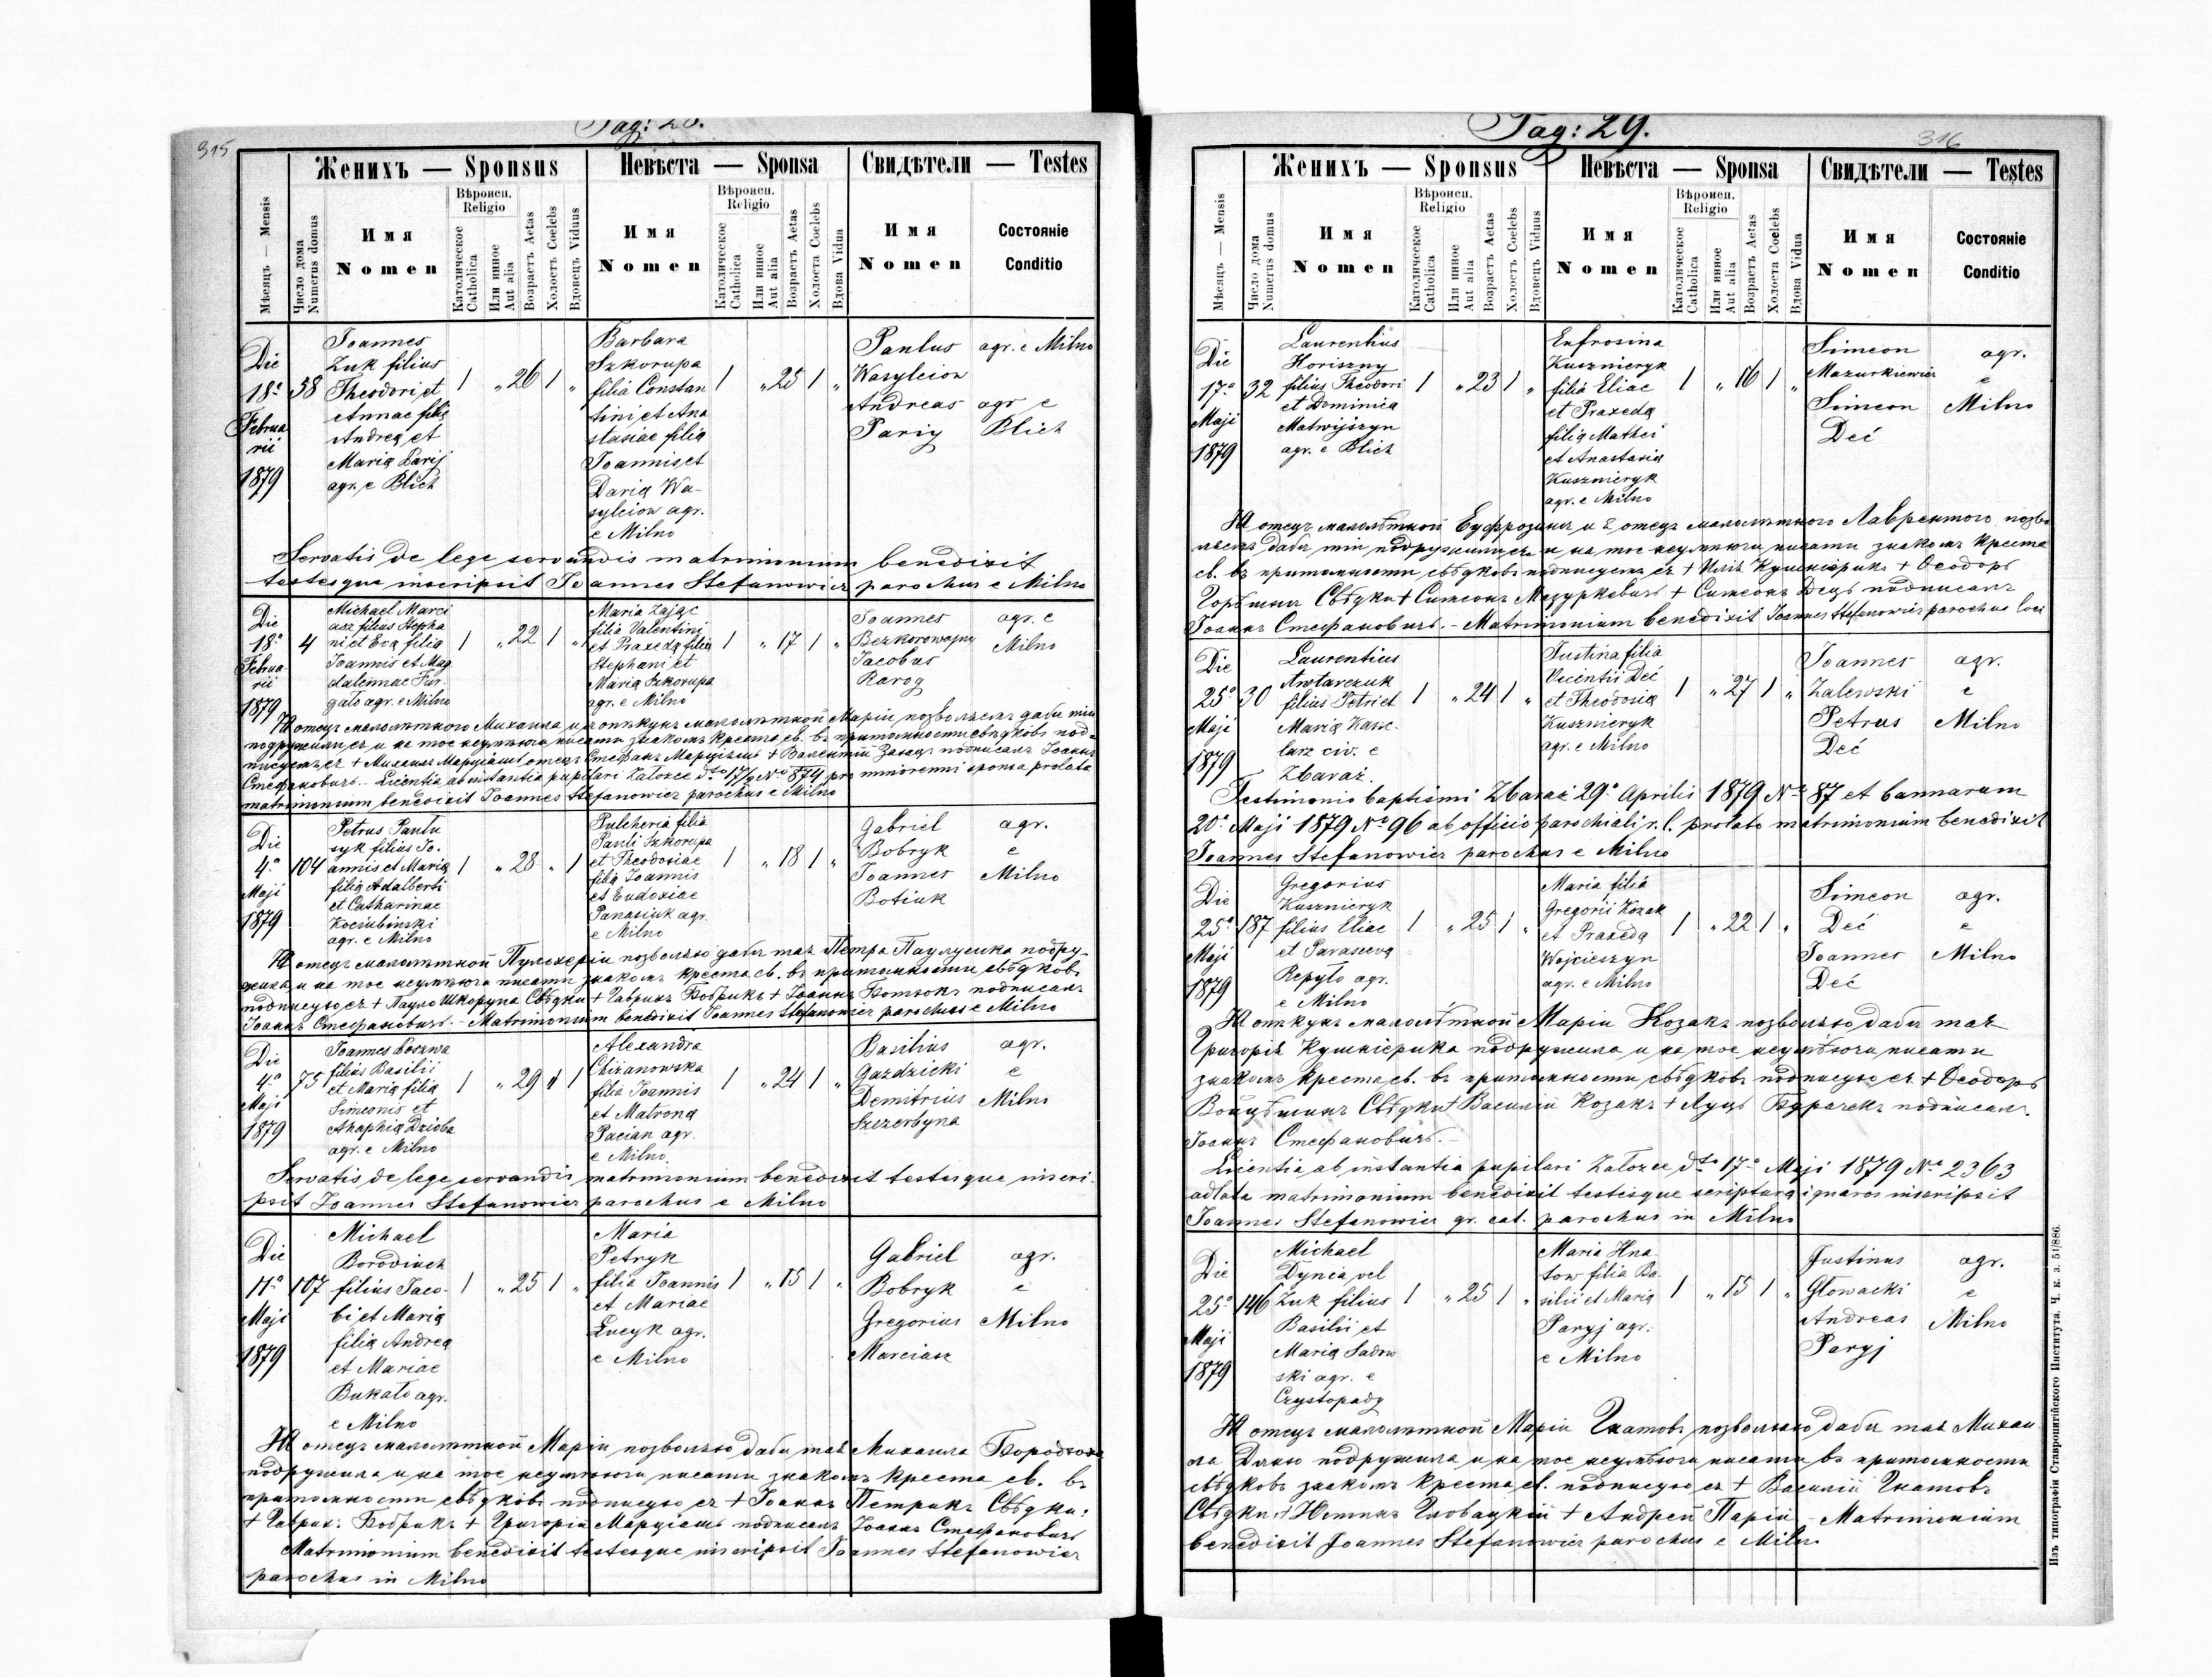 315
Pag: 28.
Женихъ — Sponsus
Невѣста — Sponsa
Свидѣтели — Testes
Мѣсяцъ — Mensis
Число дома
Numerus domus
Имя
Nomen
Вѣроисп.
Religio
Католическое
Catholica
Или инное
Aut alia
Возрастъ Aetas
Холостъ Coelebs
Вдовецъ Vidus
Имя
Nomen
Вѣроисп.
Religio
Католическое
Catholica
Или инное
Aut alia
Возрастъ Aetas
Холоста Coelebs
Вдова Vidua
Имя
Nomen
Состояніе
Conditio
Die
18ª
Februa
rii
1879
58
Joannes
Zuk filius
Theodori et
Annae filia
Andrea et
Maria Parij
agr. e Blich
1 „ 26 1 „
Barbara
Szkorupa
filia Constan
tini et Ana
stasiae filia
Joannis et
Daria Wa-
sylciow agr.
e Milno
1 „ 25 1 „
Paulus agr. e Milno
Wasylciow
Andreas agr e
Pariy Blich
Servatis de lege servandis matrimonium benedixit
testesque inscripsit Joannes Stefanowicz parochus e Milno
Die
18ª
Februa
rii
1879
4
Michael Marci
asz filius Stepha
ni et Eva filia
Joannis et Mag
dalennae Fur-
gato agr. e Milno
1 „ 22 1 „
Maria Zając
filia Valentini
et Praxeda filia
Stephani et
Maria Szkorupa
agr. e Milno
1 „ 17 1 „
Joannes agr. e
Bezkorowajny Milno
Jacobus
Barog
Я отецъ малолѣтного Михаила и я опѣкунъ малолѣтной Маріи позволяемъ дабы тіи
подружилися и на тое неумѣючи писати знакомъ креста св. въ притомности свѣдковъ под-
писуемъся + Михаилъ Марціяшъ отецъ Стефанъ Марціяшъ + Валентій Заяцъ подписалъ Іоаннъ
Стефановичъ. - Licentia ab instantia pupilari Załozce dto 17/2 No 874 pro minorenni sponsa prolata
matrimonium benedixit Joannes Stefanowicz parochus e Milno
Die
4ª
Maji
1879
104
Petrus Pautu
syk filius Jo-
annis et Maria
filia Adalberti
et Catharinae
Kociubinski
agr. e Milno
1 „ 28 „ 1
Pulcheria filia
Pauli Szkorupa
et Theodosiae
filia Joannis
et Eudoxiae
Panasiuk agr.
e Milno
1 „ 18 1 „
Gabriel agr.
Bobryk e
Joannes Milno
Botiuk
Я отецъ малолѣтной Пулхеріи позволяю дабы тая Петра Паулусика подру-
жила и на тое неумѣючи писати знакомъ креста св. въ притомности свѣдковъ
подписуюся + Пауло Шкорупа Свѣдки + Гаврилъ Бобрикъ + Іоаннъ Ботюкъ подписалъ
Іоаннъ Стефановичъ. - Matrimonium benedixit Joannes Stefanowicz parochus e Milno
Die
4ª
Maji
1879
75
Joannes Loszwa
filius Basilii
et Maria filia
Simeonis et
Ahaphia Dzioba
agr. e Milno
1 „ 29 „ 1
Alexandra
Chizanowska
filia Joannis
et Matrona
Pacian agr.
e Milno
1 „ 24 1 „
Basilius agr.
Gazdzicki e
Demitrius Milno
Szczerbyna
Servatis de lege servandis matrimonium benedixit testesque inscri-
psit Joannes Stefanowicz parochus e Milno
Die
11ª
Maji
1879
107
Michael
Borodiuch
filius Jaco-
bi et Maria
filia Andrea
et Mariae
Bukato agr.
e Milno
1 „ 25 1 „
Maria
Petryk
filia Joannis
et Mariae
Lucyk agr.
e Milno
1 „ 15 1 „
Gabriel agr.
Bobryk e
Gregorius Milno
Marciasz
Я отецъ малолѣтной Маріи позволяю дабы тая Михаила Бородюха
подружила и на тое неумѣючи писати знакомъ креста св. въ
притомности свѣдковъ подписуюся + Іоаннъ Петрикъ Свѣдки:
+ Гаврил: Бобрикъ + Григорій Марціяшъ подписалъ Іоаннъ Стефановичъ
Matrimonium benedixit testesque inscripsit Joannes Stefanowicz
parochus in Milno
Pag: 29.
316
Женихъ — Sponsus
Невѣста — Sponsa
Свидѣтели — Testes
Мѣсяцъ — Mensis
Число дома
Numerus domus
Имя
Nomen
Вѣроисп.
Religio
Католическое
Catholica
Или инное
Aut alia
Возрастъ Aetas
Холостъ Coelebs
Вдовецъ Vidus
Имя
Nomen
Вѣроисп.
Religio
Католическое
Catholica
Или инное
Aut alia
Возрастъ Aetas
Холоста Coelebs
Вдова Vidua
Имя
Nomen
Состояніе
Conditio
Die
17ª
Maji
1879
32
Laurentius
Horiszny
filius Theodori
et Dominica
Matwijszyn
agr. e Blich
1 „ 23 1 „
Eufrosina
Kusznieryk
filia Eliae
et Praxeda
filia Mathei
et Anastasia
Kusznieryk
agr. e Milno
1 „ 16 1 „
Simeon agr.
Mazurkiewicz e
Simeon Milno
Deć
Я отецъ малолѣтной Еуфрозины и я отецъ малолѣтного Лаврентого позво
ляемъ дабы тіи подружилися и на тое неумѣючи писати знакомъ креста
св. въ притомности свѣдковъ подписуемъся + Илія Кушнѣрикъ + Ѳеодоръ
Горѣшный Свѣдки + Симеонъ Мазуркевичъ + Симеонъ Дець подписалъ
Іоаннъ Стефановичъ. - Matrimonium benedixit Joannes Stefanowicz parochus loci
Die
25ª
Maji
1879
30
Laurentius
Awtarczuk
filius Petri et
Maria Kasz-
larz civ. e
Zbaraż.
1 „ 24 1 „
Justina filia
Vicentii Deć
et Theodosia
Kusznieryk
agr. e Milno
1 „ 27 1 „
Joannes agr.
Zalewski e
Petrus Milno
Deć
Testimonio baptismi Zbaraż 29ª Aprilis 1879 No 87 et bannarum
20ª Maji 1879 No 96 ab officio parochiali r. l. prolato matrimonium benedixit
Joannes Stefanowicz parochus e Milno
Die
25ª
Maji
1879
187
Gregorius
Kusznieryk
filius Eliae
et Parasceva
Repyło agr.
e Milno
1 „ 25 1 „
Maria filia
Gregorii Kozak
et Praxeda
Wojcieszyn
agr. e Milno
1 „ 22 1 „
Simeon agr.
Deć e
Joannes Milno
Deć
Я опѣкунъ малолѣтной Маріи Козакъ позволяю дабы тая
Григорія Кушнѣрика подружила и на тое неумѣючи писати
знакомъ креста св. въ притомности свѣдковъ подписуюся + Ѳеодоръ
Войцѣшинъ Свѣдки + Василій Козакъ + Луць Бурачекъ подписалъ
Іоаннъ Стефановичъ. -
Licentia ab instantia pupilari Załozce dto 17ª Maji 1879 No 2363
adlata matrimonium benedixit testesque scriptura ignaros inscripsit
Joannes Stefanowicz gr. cat. parochus in Milno
Die
25ª
Maji
1879
146
Michael
Dynia vel
Zuk filius
Basilii et
Maria Sadow
ski agr. e
Czystopady
1 „ 25 1 „
Maria Hna
tow filia Ba-
silii et Maria
Paryj agr.
e Milno
1 „ 15 1 „
Justinus agr.
Głowacki e
Andreas Milno
Paryj
Я отецъ малолѣтной Маріи Гнатовъ позволяю дабы тая Михаи
ла Дыню подружила и на тое неумѣючи писати въ притомности
свѣдковъ знакомъ креста св. подписуюся + Василій Гнатовъ
Свѣдки: + Юстинъ Гловацкій + Андрей Парій - Matrimonium
benedixit Joannes Stefanowicz parochus e Milno
Изъ типографіи Ставропигійского Института. Ч. к. з. 51/886.